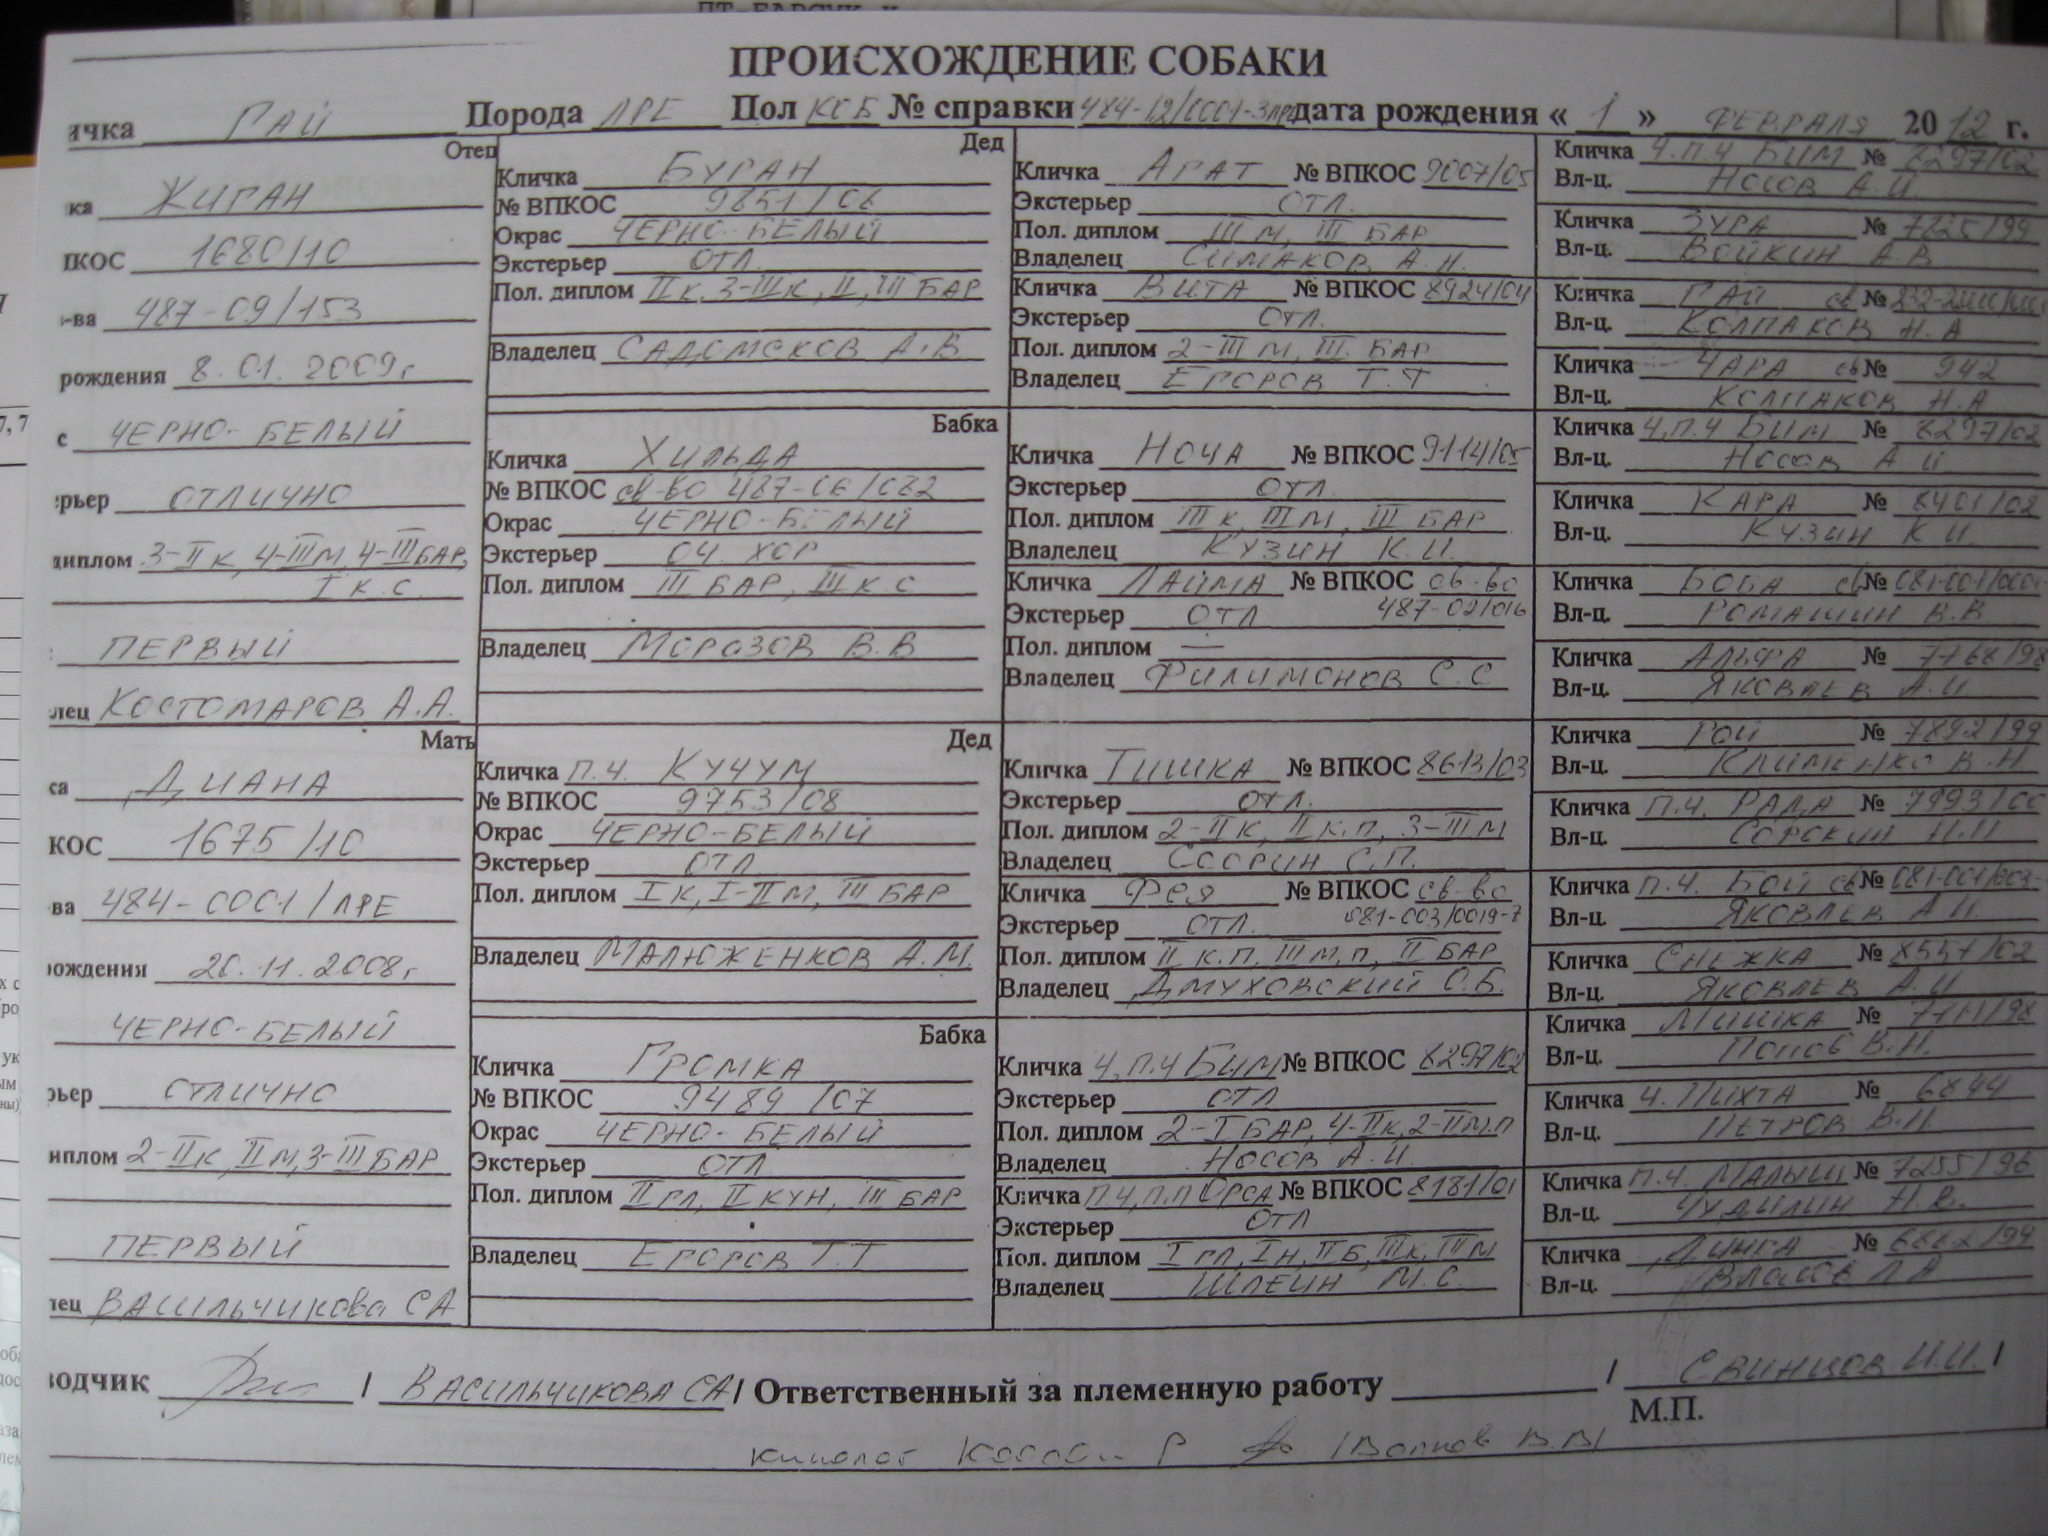 ПРОИСХОЖДЕНИЕ СОБАКИ
ичка ГАЙ Порода ЛРЕ Пол КОБ № справки дата рождения « 1 » ФЕВРАЛЯ 2012 г.
Отец
ЖИГАН
КОС 1680/10
-ва 487-09/153
рождения 8.01.2009г
с ЧЕРНО-БЕЛЫЙ
ерьер ОТЛИЧНО
диплом 3-IIК, 4-IIIМ, 4-III БАР,
I К.С.
ПЕРВЫЙ
лец КОСТОМАРОВ А.А.
Мать
ДИАНА
КОС 1675/10
ва 484-0001/ЛРЕ
рождения 20.11.2008г
ЧЕРНО-БЕЛЫЙ
рьер ОТЛИЧНО
иплом 2-IIК, IIМ, 3-III БАР
ПЕРВЫЙ
лец ВАСИЛЬЧИКОВА СА
Дед
Кличка БУРАН
№ ВПКОС 9851/08
Окрас ЧЕРНО-БЕЛЫЙ
Экстерьер ОТЛ.
Пол. диплом IIК, 3-IIIК, II, III БАР
Владелец САДОМСКОВ А.В
Бабка
Кличка ХИЛЬДА
№ ВПКОС св-во 487-06/082
Окрас ЧЕРНО-БЕЛЫЙ
Экстерьер ОЧ. ХОР
Пол. диплом III БАР, III К.С
Владелец МОРОЗОВ В.В
Дед
Кличка П.Ч. КУЧУМ
№ ВПКОС 9753/08
Окрас ЧЕРНО-БЕЛЫЙ
Экстерьер ОТЛ
Пол. диплом IК, I-IIМ, III БАР
Владелец МАЛЮЖЕНКОВ А.М.
Бабка
Кличка ГРОМКА
№ ВПКОС 9489/07
Окрас ЧЕРНО-БЕЛЫЙ
Экстерьер ОТЛ
Пол. диплом II ГЛ, II КУН, III БАР
Владелец ЕГОРОВ Т.Т
Кличка АГАТ № ВПКОС 9007/05
Экстерьер ОТЛ.
Пол. диплом III М, III БАР
Владелец СИМАКОВ А.Н.
Кличка ВИТА № ВПКОС 8924/04
Экстерьер ОТЛ.
Пол. диплом 2-III М, III БАР
Владелец ЕГОРОВ Т.Т
Кличка НОЧА № ВПКОС 9114/05
Экстерьер ОТЛ.
Пол. диплом III К, III М, III БАР
Владелец КУЗИН К.И.
Кличка ЛАЙМА № ВПКОС св-во
Экстерьер ОТЛ 487-02/016
Пол. диплом —
Владелец ФИЛИМОНОВ С.С
Кличка ТИШКА № ВПКОС 8613/03
Экстерьер ОТЛ.
Пол. диплом 2-II К, II К.П, 3-III М
Владелец С.П.
Кличка ФЕЯ № ВПКОС св-во
Экстерьер ОТЛ. 081-003/0019-7
Пол. диплом II К.П, III М,П, II БАР
Владелец ДМУХОВСКИЙ О.Б.
Кличка Ч,П.Ч БИМ № ВПКОС 8297/02
Экстерьер ОТЛ
Пол. диплом 2-I БАР, 4-IIК, 2-II М.П
Владелец НОСОВ А.И.
Кличка П.Ч, П.П УРСА № ВПКОС 8181/01
Экстерьер ОТЛ
Пол. диплом I ГЛ, I Н, II Б, III К, III М
Владелец ШЛЕИН М.С.
Кличка Ч.П.Ч БИМ № 8297/02
Вл-ц. НОСОВ А.И.
Кличка ЗУРА № 7825/99
Вл-ц. ВОЙКИН А.В
Кличка ГАЙ св №
Вл-ц. КОЛПАКОВ Н.А
Кличка ЧАРА св № 942
Вл-ц. КОЛПАКОВ Н.А
Кличка Ч.П.Ч БИМ № 8297/02
Вл-ц. НОСОВ А.И.
Кличка КАРА № 8401/02
Вл-ц. КУЗИН К И.
Кличка БОБА св №
Вл-ц. РОМАШИН В.В
Кличка АЛЬФА № 7768/98
Вл-ц. ЯКОВЛЕВ А.И
Кличка РОЙ № 7892/99
Вл-ц. КЛИМЕНКО В.Н.
Кличка П.Ч. РАДА № 7993/00
Вл-ц. СОРОКИН Н.И
Кличка П.Ч. БОЙ св №
Вл-ц. ЯКОВЛЕВ А.И.
Кличка СНЕЖКА № 8557/02
Вл-ц. ЯКОВЛЕВ А.И
Кличка МИШКА №
Вл-ц. ПОПОВ В.Н.
Кличка Ч. ПИХТА № 6844
Вл-ц. ПЕТРОВ В.П.
Кличка П.Ч. МАЛЫШ № 7255/96
Вл-ц. Н.В.
Кличка ДИНКА № 6882/94
Вл-ц. ВЛАСОВ Л А
водчик / ВАСИЛЬЧИКОВА СА / Ответственный за племенную работу / СВИНЦОВ И.И. /
М.П.
кинолог /Волков В.В/